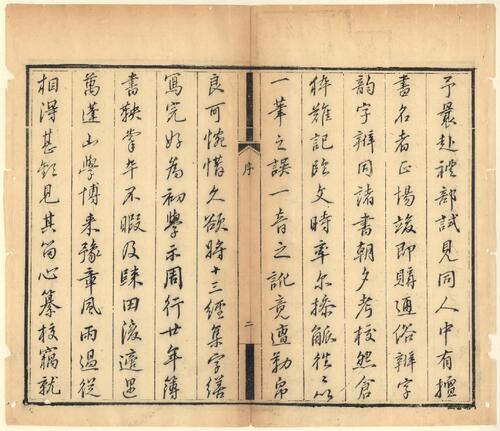 予曩赴禮部試見同人中有擅
書名者正場竣即購通俗辨字
韵字辨同諸書朝夕考校然倉
猝難記臨文時率尔操觚往〻以
一筆之誤一音之訛竟遭勒帛
序
二
良可惋惜久欲將十三經集字繕
寫完好為初學示周行廿年簿
書鞅掌卒不暇及歸田後適遇
萬蓬山學博来豫章風雨過從
相得甚歡見其留心纂校竊就